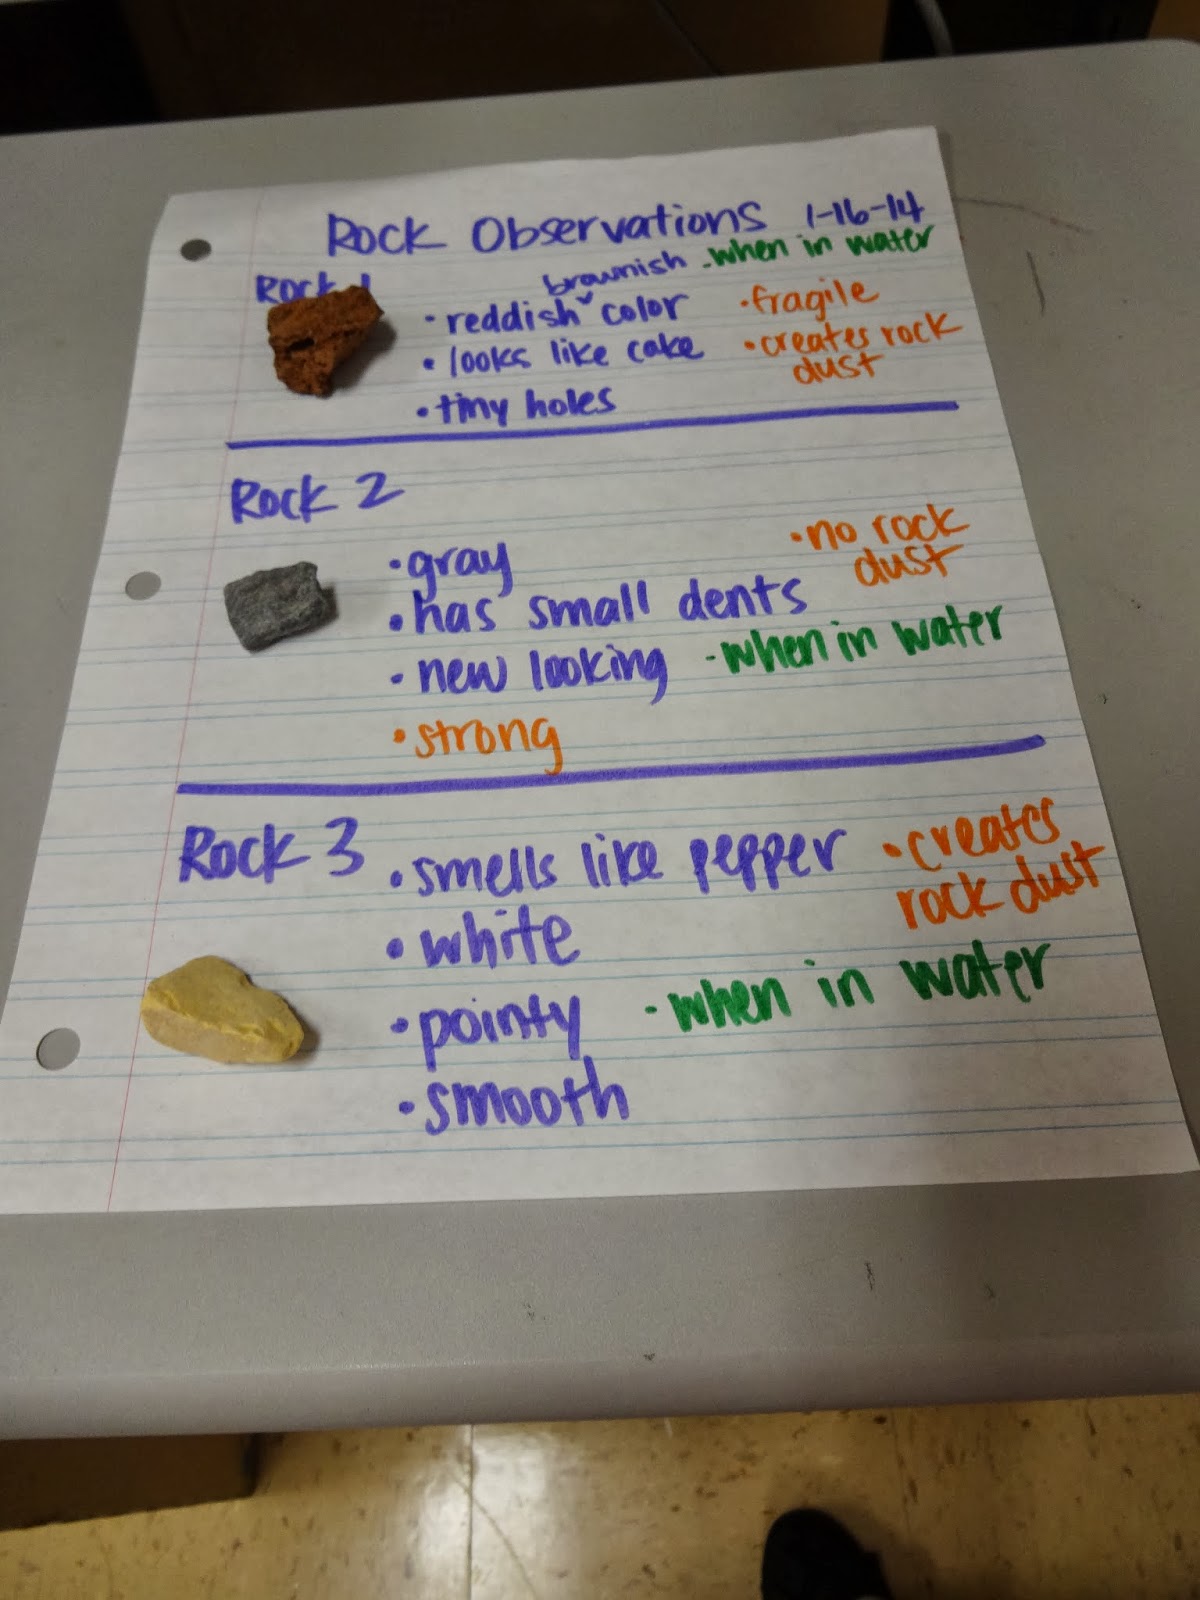 Rock Observations 1-16-14
Rock 1
brownish - when in water
• reddish color • fragile
• looks like cake • creates rock
dust
• tiny holes
Rock 2
• gray • no rock
dust
• has small dents
• new looking - when in water
• strong
Rock 3 • smells like pepper • creates
rock dust
• white
• pointy - when in water
• smooth